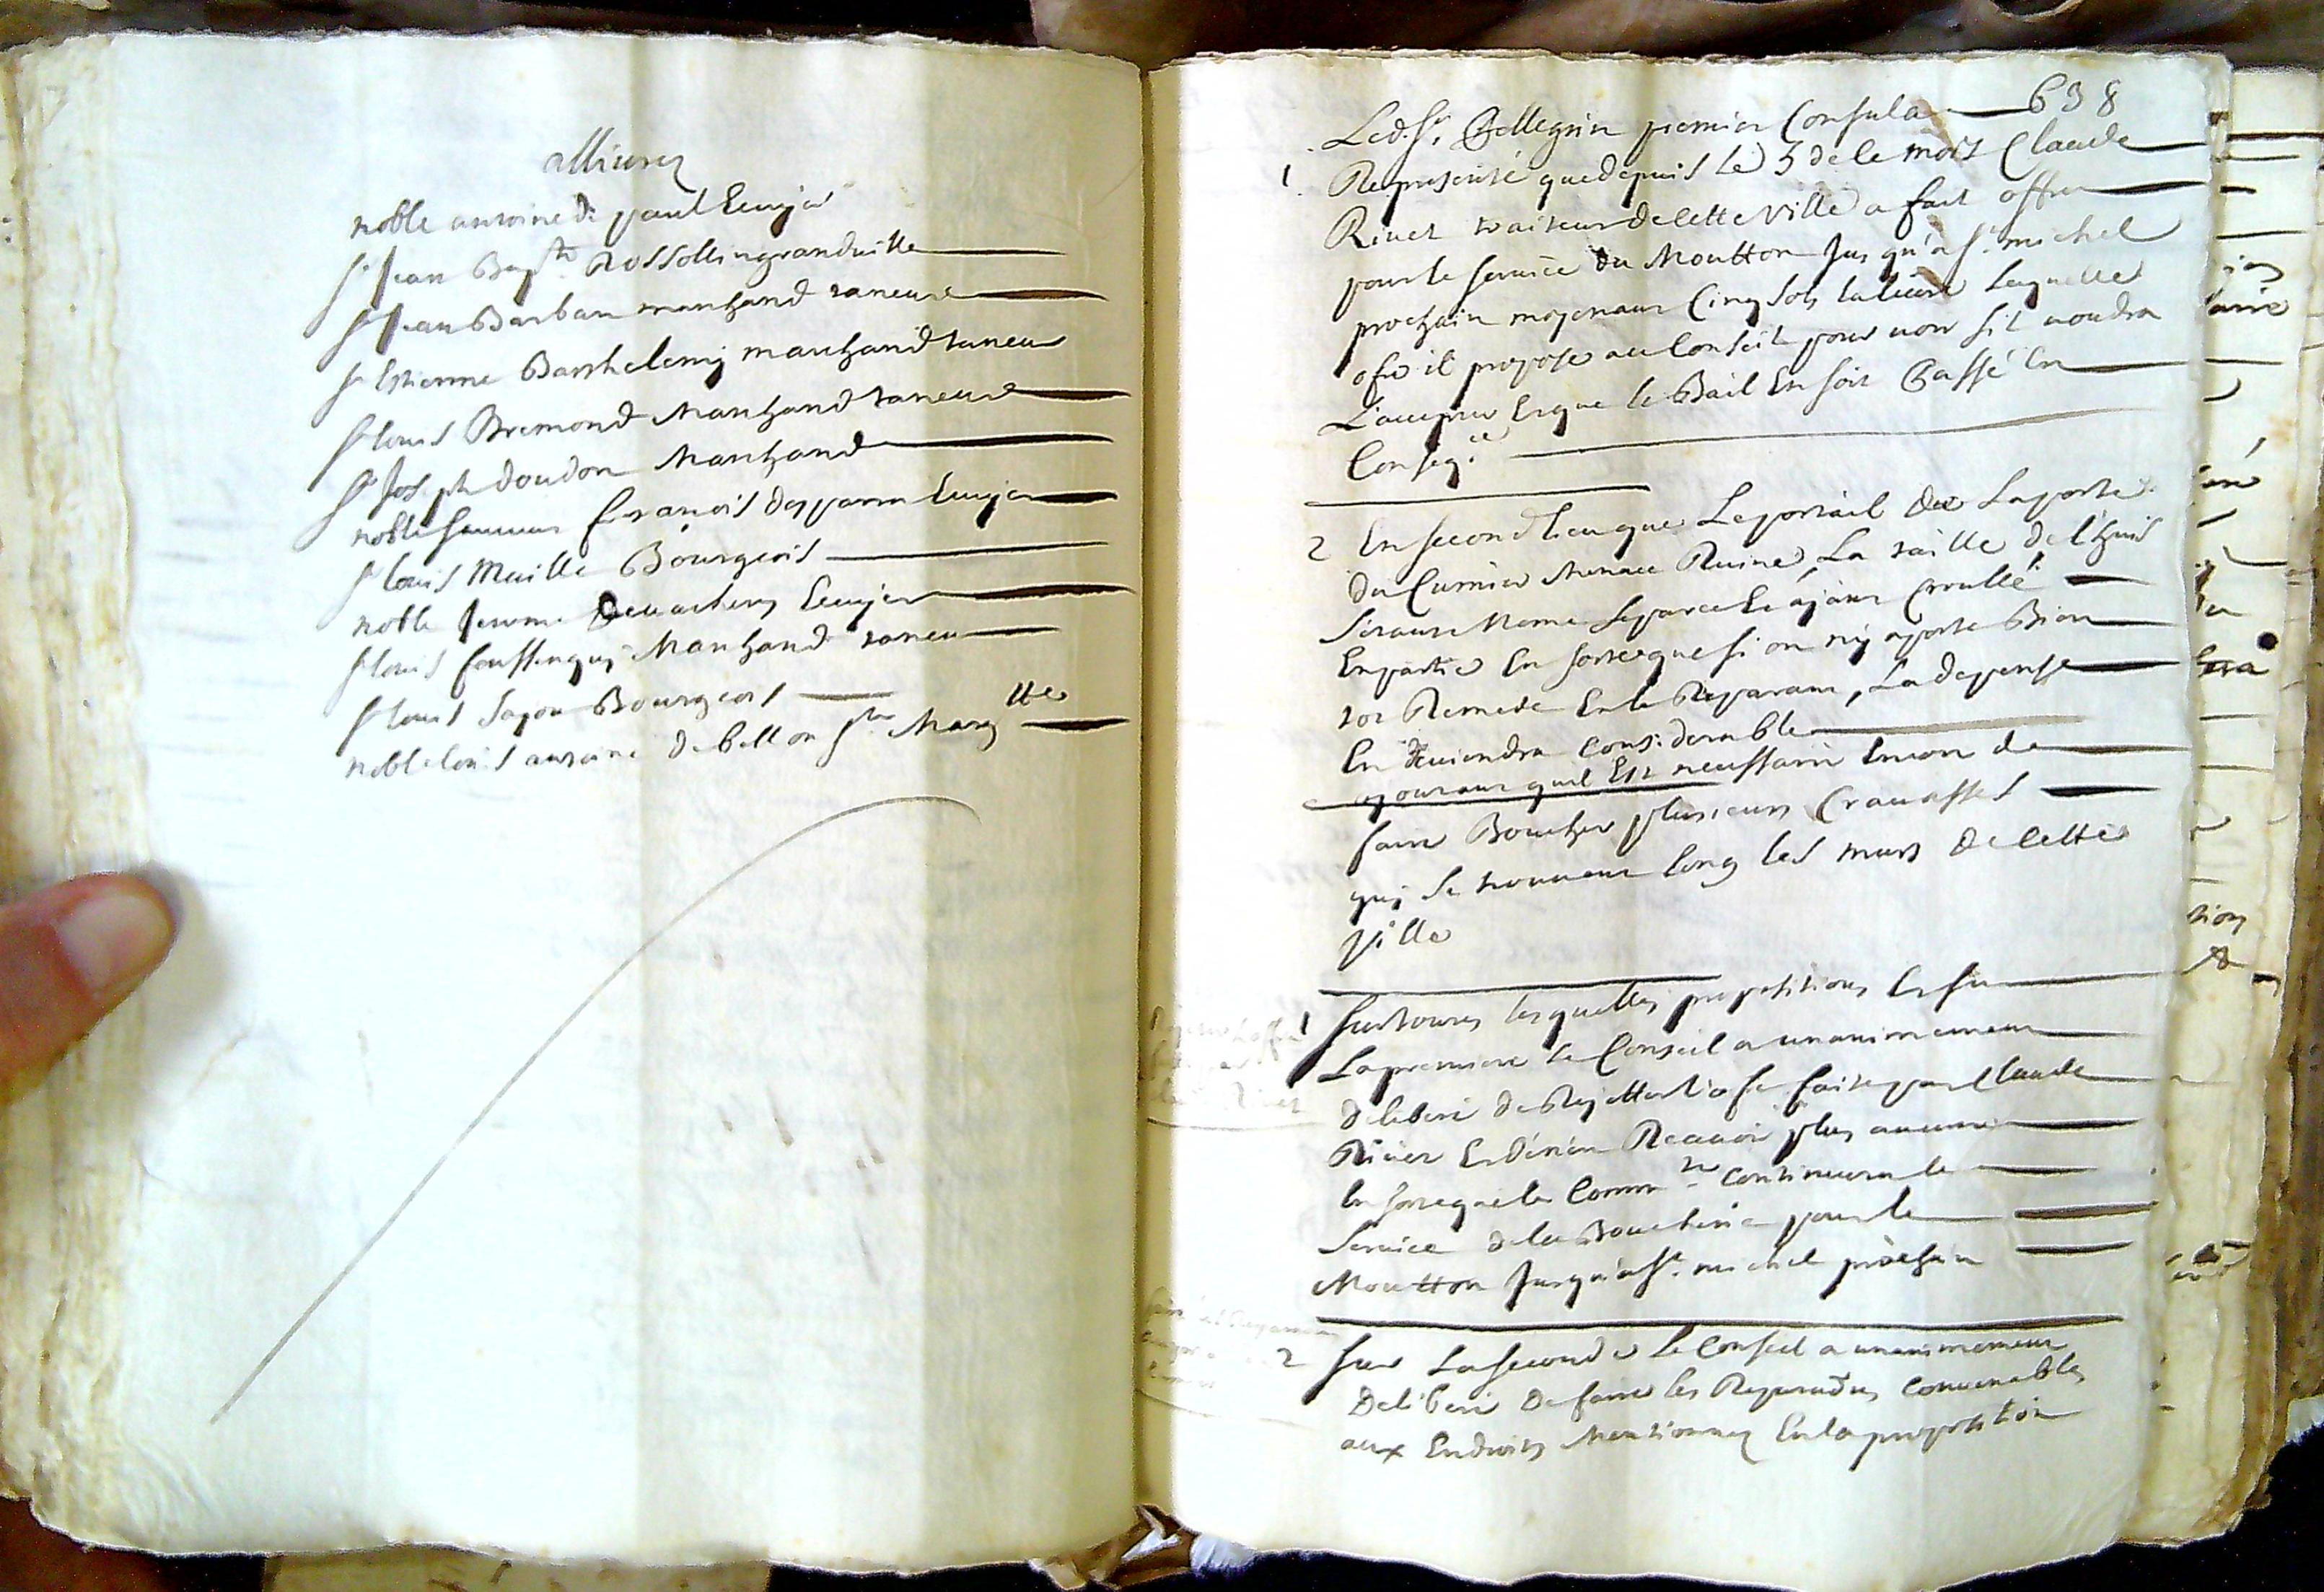 alliurez
noble antoine de paul Ecuyer
Sr Jean Bapte Rossollin grandville
Sr Jean Barban marchand taneur
Sr Estienne Barthelemy marchand taneur
Sr Louis Bremond Marchand taneur
Sr Joseph doudon Marchand
noble francois desparra Ecuyer
Sr Louis Maille Bourgeois
noble Jerome Ecuyer
Sr Louis Marchand taneur
Sr Louis Bourgeois
noble Louis antoine de bellon Ste Margtte
638
Led. Sr. Pellegrin premier Consul a
1. Representé que depuis le 5 de ce mois Claude
Rivet traiteur de cette ville a fait offre
pour le service du Moutton Jusqu'a St. michel
prochain moyenant Cinq sols la livre laquelle
ofre il propose au Conseil pour voir sil voudra
L'accepter Et que le Bail En soit Passé En
Conseqce
2 En second lieu que Le portail de La porte
du Cumier Menace Ruine, La taille de l'huis
s'etant Meme separée Et ayant croullé
En partie En sorte que si on n'y aporte Bien
tot Remede En le Reparant, La depense
En deviendra considerable
ajoutant quil Est necessaire Encor de
faire Boucher plusieurs Cravasses
qui se trouvent long les murs de cette
ville
1 Sur toutes lesquelles propositions Et sur
La premiere le Conseil a unanimement
deliberé de Rejetter l'ofre faite par Claude
Rivet Et d'en Recevoir plus aucune
En sorte que la Commté continuera le
service de la Boucherie pour le
Moutton Jusqu'a St. michel prochain
2 Sur La seconde le Conseil a unanimement
Deliberé De faire les Reparaons convenables
aux Endroits Mentionnez En la proposition